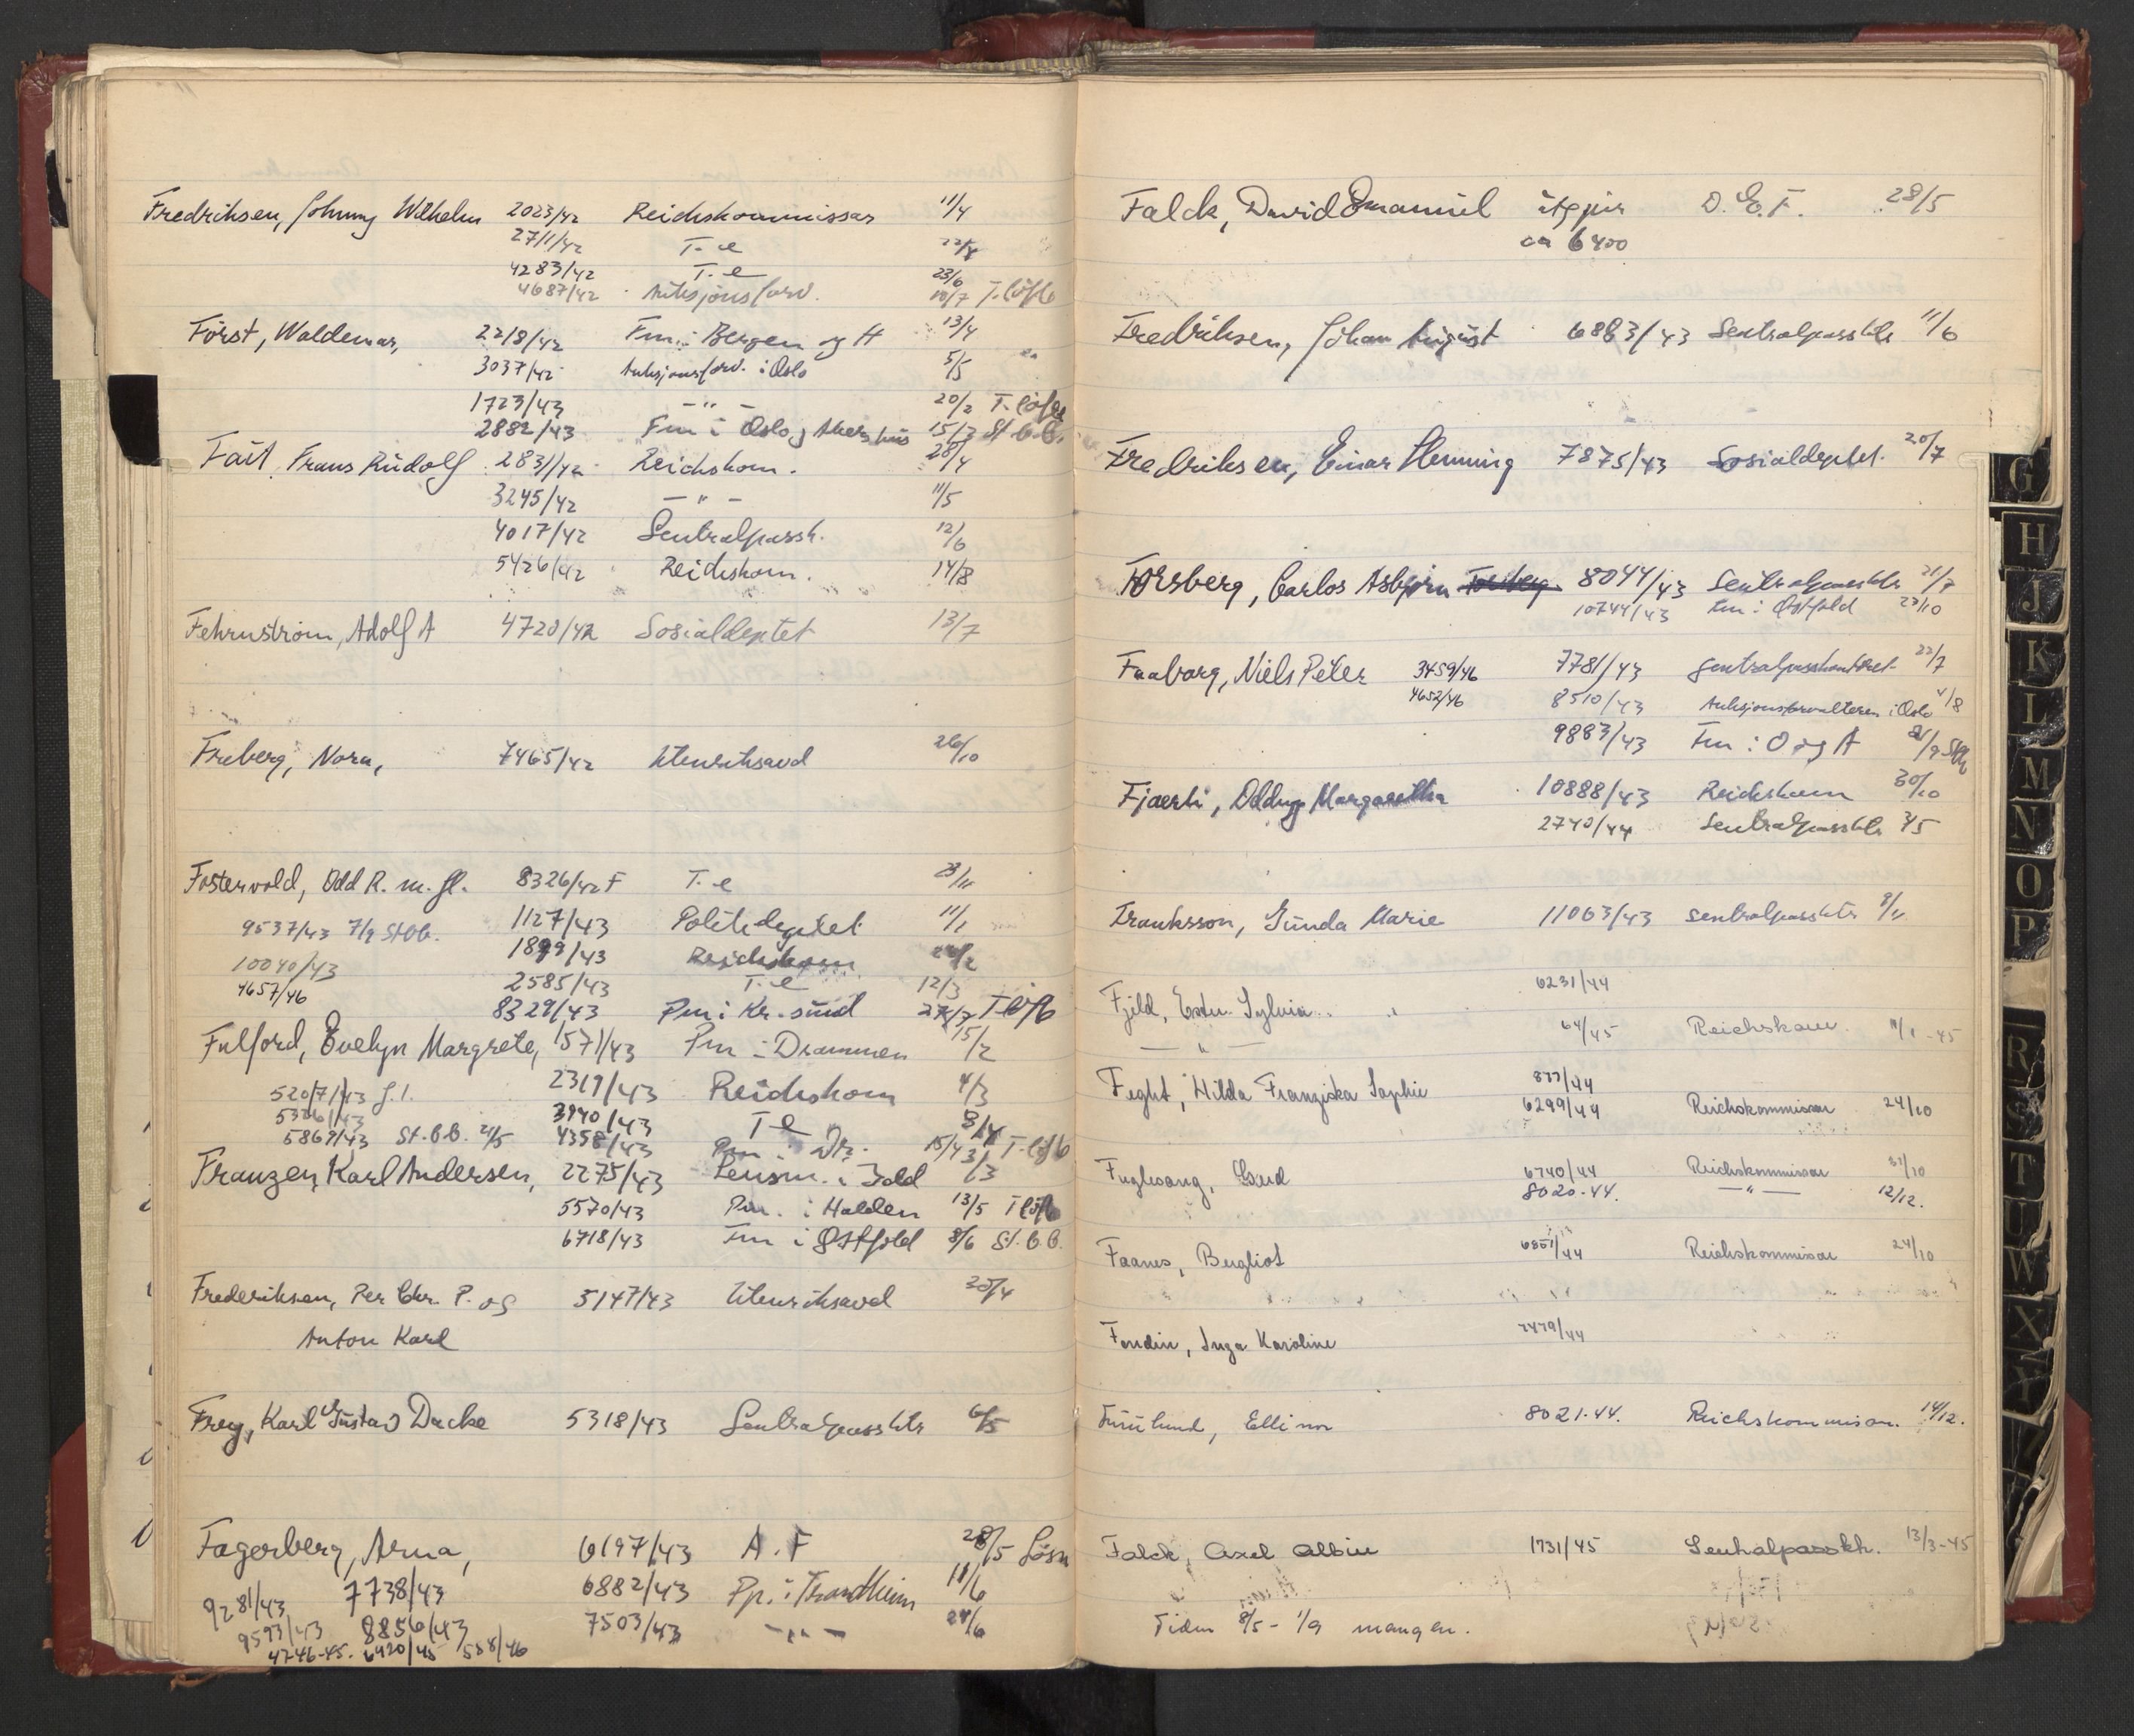 Fredriksen, Johnny Wilhelm 2023/42 Reichskommissar 11/4
2711/42 T. e 22/4
4283/42 T. e 23/6
4687/42 Auksjonsforv. 10/7 T. löfb
Först, Waldemar, 2218/42 Fm. i Bergen og H 13/4
3037/42 Auksjonsforv. i Oslo 5/5
1723/43 - " - 20/2 T. löfb
2882/43 Fm i Oslo og Akershus 15/3 St. b.b.
Fait, Frans Rudolf 2831/42 Reichskom. 28/4
3245/42 - " - 11/5
4017/42 Sentralpassk. 12/6
5426/42 Reichskom. 14/8
Fehrnström, Adolf A 4720/42 Sosialdeptet 13/7
Friberg, Nora, 7465/42 Utenriksavd 26/10
Fostervold, Odd R. m. fl. 8326/42 F T. e 23/11
9537/43 7/9 St.b.b. 1127/43 Politideptet 11/1
1899/43 Reichskom
10040/43 2585/43 T. e 12/3
4657/46 8329/43 Pm i Kr. sund 27/7 T löfb
Fulford, Evelyn Margrete, 1571/43 Pm i Drammen 15/2
5207/43 g.l. 2319/43 Reichskom 4/3
5326/43 3940/43 T e 8/4
5869/43 St. b.b. 21/5 4358/43 Pm i Dr. 15/4 T. löfb
Franzen, Karl Andersen, 2275/43 Lensm. i Idd 3/3
5570/43 Pm. i Halden 13/5 T löfb
6718/43 Fm i Østfold 8/6 St. b.b.
Frederiksen, Per Chr. P. og 5147/43 Utenriksavd 28/4
Anton Karl
Frey, Karl Gustav Dacke 5318/43 Sentralpassktr 6/5
Fagerberg, Arna, 6197/43 A. F 28/5 Lösn
9281/43 7738/43 6882/43 Pp. i Trondheim 11/6
9593/43 8856/43 7503/43 - " - 29/6
4746-45. 6920/45 588/46
Falck, David Emanuel utgjør D. E. F. 28/5
ca 6400
Fredriksen, Johan August 6883/43 Sentralpassktr 11/6
Fredriksen, Einar Henning 7875/43 Sosialdeptet. 20/7
Forsberg, Carlos Asbjørn 8044/43 Sentralpassktr 21/7
10744/43 Fm i Østfold 27/10
Faaborg, Niels Peter 3459/46 7781/43 Sentralpasskontoret 22/7
4652/46 8510/43 Auksjonsforvalteren i Oslo 4/8
9883/43 Fm i O og A
Fjaerli, Oddny Margaretha 10888/43 Reichskom 30/10
2740/44 Sentralpassktr 3/5
Franksson, Gunda Marie 11063/43 Sentralpassktr 9/11
6231/44
Fjeld, Ester Sylvia 64/45 Reichskom. 11/1-45
— " —
Feght, Hilda Franziska Sophie 877/44
6299/44 Reichskommissar 24/10
Fuglesang, Gerd 6740/44 Reichskommissar 31/10
8020-44. — " — 12/12.
Faanes, Bergliot 6851/44 Reichskommissar 24/10
Fondin, Inga Karoline 7479/44
Furulund, Ellinor 8021-44. Reichskommissar. 14/12.
Falck, Axel Albin 1731/45 Sentralpassktr. 13/3-45
Tiden 8/5 - 1/9 mangler.
G
H
J
K
L
M
N
O
P
R
S
T
U
W
X
Y